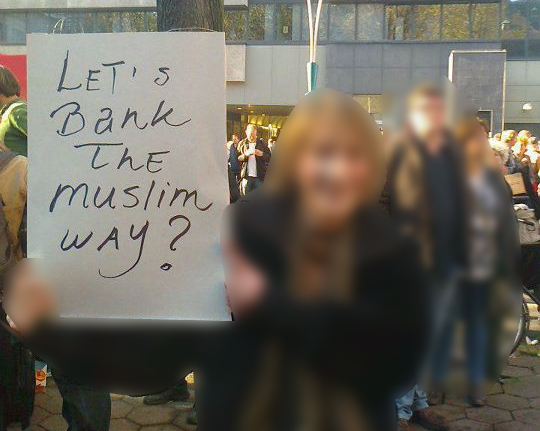 LET'S
Bank
The
muslim
WAY?